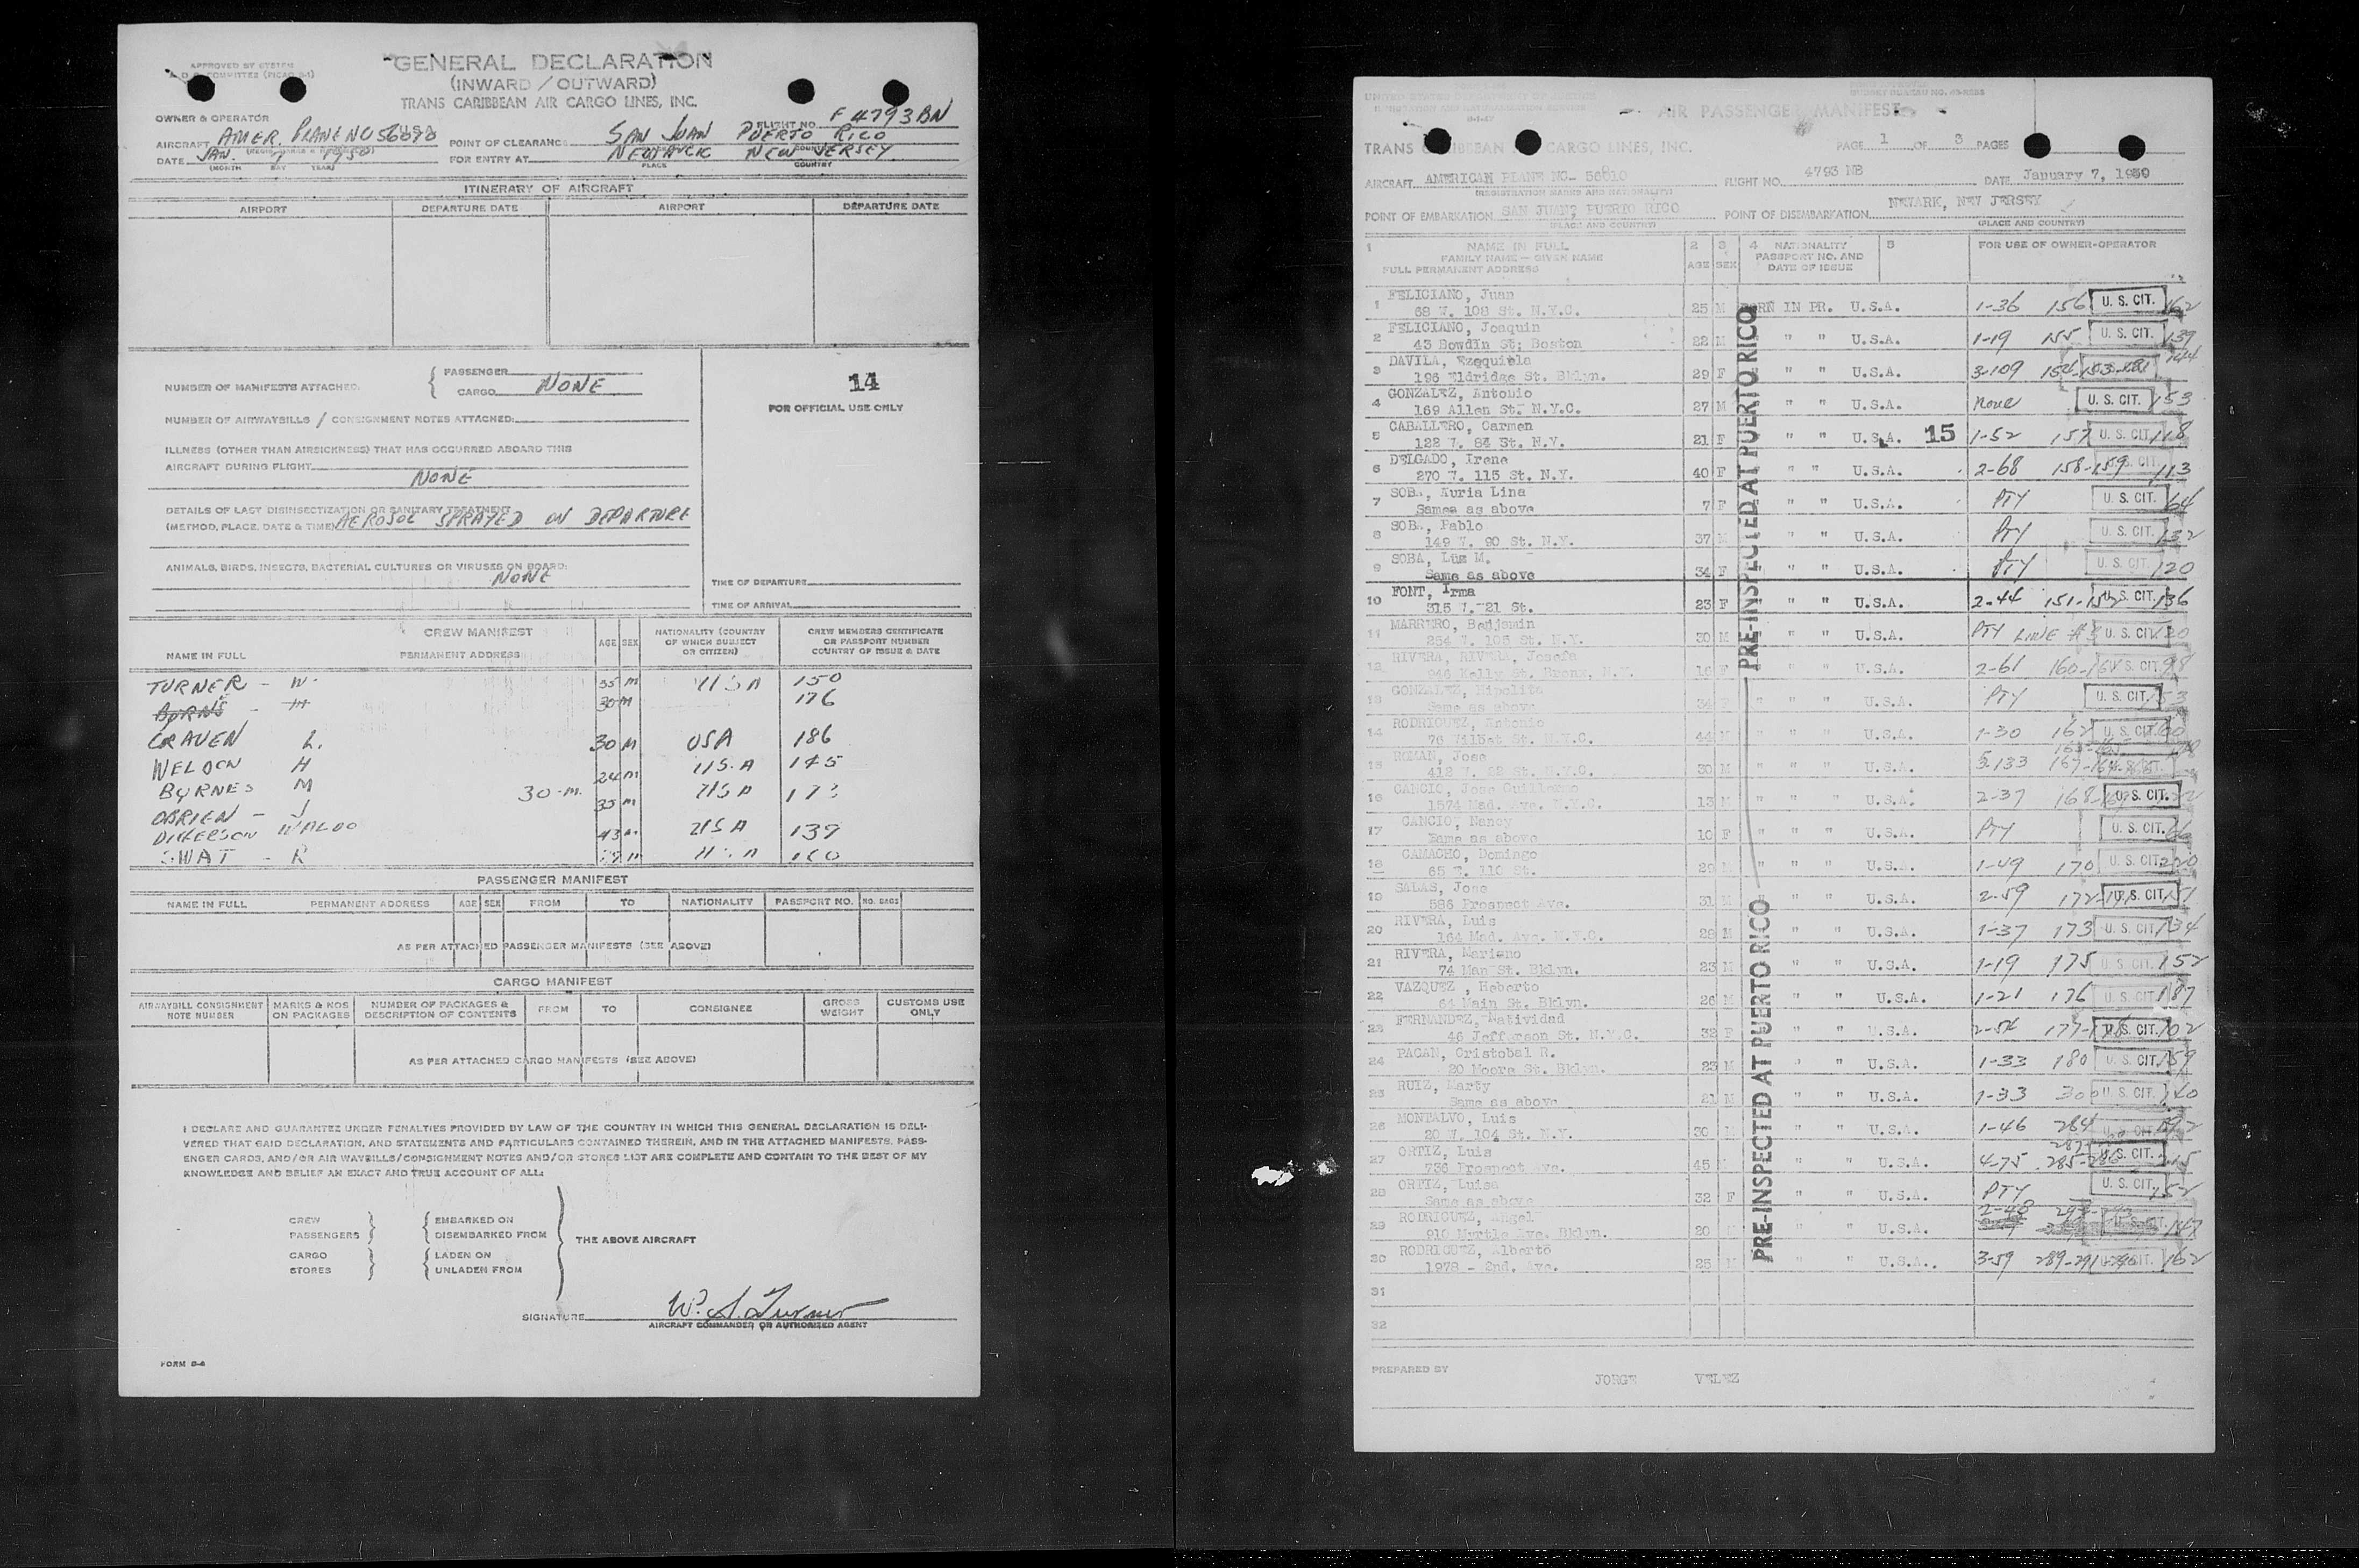 APPROVED BY SYSTEM
GENERAL DECLARATION
(INWARD / OUTWARD)
TRANS CARIBBEAN AIR CARGO LINES, INC.
OWNER & OPERATOR
FLIGHT NO. F 4793 BN
AIRCRAFT AMER. PLANE NO 56 USA
POINT OF CLEARANCE SAN JUAN PUERTO RICO
DATE JAN. 7 1950
FOR ENTRY AT NEWARK NEW JERSEY
(MONTH DAY YEAR)
PLACE COUNTRY
ITINERARY OF AIRCRAFT
AIRPORT DEPARTURE DATE AIRPORT DEPARTURE DATE
NUMBER OF MANIFESTS ATTACHED:
PASSENGER
CARGO NONE
14
FOR OFFICIAL USE ONLY
NUMBER OF AIRWAYBILLS / CONSIGNMENT NOTES ATTACHED:
ILLNESS (OTHER THAN AIRSICKNESS) THAT HAS OCCURRED ABOARD THIS
AIRCRAFT DURING FLIGHT
NONE
DETAILS OF LAST DISINSECTIZATION OR SANITARY TREATMENT
(METHOD, PLACE, DATE & TIME) AEROSOL SPRAYED ON DEPARTURE
ANIMALS, BIRDS, INSECTS, BACTERIAL CULTURES OR VIRUSES ON BOARD:
NONE
TIME OF DEPARTURE
TIME OF ARRIVAL
CREW MANIFEST
NAME IN FULL PERMANENT ADDRESS AGE SEX
NATIONALITY (COUNTRY OF WHICH SUBJECT OR CITIZEN)
CREW MEMBERS CERTIFICATE OR PASSPORT NUMBER COUNTRY OF ISSUE & DATE
TURNER - W. 35 M USA 150
BYRNS - M 30 M 176
CRAVEN L. 30 M USA 186
WELDON H 24 M USA 145
BYRNES M 30 - M. USA
OBRIEN - J 35 M
DICKERSON WALDO 43 USA 139
R
PASSENGER MANIFEST
NAME IN FULL PERMANENT ADDRESS AGE SEX FROM TO NATIONALITY PASSPORT NO. NO. BAGS
AS PER ATTACHED PASSENGER MANIFESTS (SEE ABOVE)
CARGO MANIFEST
AIRWAYBILL CONSIGNMENT NOTE NUMBER
MARKS & NOS ON PACKAGES
NUMBER OF PACKAGES & DESCRIPTION OF CONTENTS
FROM TO CONSIGNEE
GROSS WEIGHT
CUSTOMS USE ONLY
AS PER ATTACHED CARGO MANIFESTS (SEE ABOVE)
I DECLARE AND GUARANTEE UNDER PENALTIES PROVIDED BY LAW OF THE COUNTRY IN WHICH THIS GENERAL DECLARATION IS DELI-
VERED THAT SAID DECLARATION, AND STATEMENTS AND PARTICULARS CONTAINED THEREIN, AND IN THE ATTACHED MANIFESTS, PASS-
ENGER CARDS, AND/OR AIR WAYBILLS/CONSIGNMENT NOTES AND/OR STORES LIST ARE COMPLETE AND CONTAIN TO THE BEST OF MY
KNOWLEDGE AND BELIEF AN EXACT AND TRUE ACCOUNT OF ALL:
CREW EMBARKED ON
PASSENGERS DISEMBARKED FROM
THE ABOVE AIRCRAFT
CARGO LADEN ON
STORES UNLADEN FROM
SIGNATURE W. S. Turner
AIRCRAFT COMMANDER OR AUTHORIZED AGENT
FORM
AIR PASSENGER MANIFEST
TRANS CARIBBEAN CARGO LINES, INC.
PAGE 1 OF 3 PAGES
AIRCRAFT AMERICAN PLANE NO- 56810
FLIGHT NO. 4793 NB
DATE January 7, 1950
(REGISTRATION MARKS AND NATIONALITY)
POINT OF EMBARKATION SAN JUAN, PUERTO RICO
POINT OF DISEMBARKATION NEWARK, NEW JERSEY
(PLACE AND COUNTRY) (PLACE AND COUNTRY)
1 NAME IN FULL 2 3 4 NATIONALITY 5 FOR USE OF OWNER-OPERATOR
FAMILY NAME - GIVEN NAME AGE SEX PASSPORT NO. AND
FULL PERMANENT ADDRESS DATE OF ISSUE
PRE-INSPECTED AT PUERTO RICO
PRE-INSPECTED AT PUERTO RICO
1 FELICIANO, Juan
68 W. 108 St. N.Y.C. 25 M BORN IN PR. U.S.A. 1-36 156 U. S. CIT. 162
2 FELICIANO, Joaquin
43 Bowdin St; Boston 22 M " " U.S.A. 1-19 155 U. S. CIT. 139
3 DAVILA, Ezequiela
196 Eldridge St. Bklyn. 29 F " " U.S.A. 3-109 154-153 144
4 GONZALEZ, Antonio
169 Allen St. N.Y.C. 27 M " " U.S.A. None U. S. CIT. 153
5 CABALLERO, Carmen
122 W. 84 St. N.Y. 21 F " " U.S.A. 15 1-52 157 U. S. CIT. 118
6 DELGADO, Irene
270 W. 115 St. N.Y. 40 F " " U.S.A. 2-68 158-159 U. S. CIT. 113
7 SOBA, Nuria Lina
Sames as above 7 F " " U.S.A. PTY U. S. CIT. 64
8 SOBA, Pablo
149 W. 90 St. N.Y. 37 M " " U.S.A. PTY U. S. CIT. 132
9 SOBA, Luz M.
Same as above 34 F " " U.S.A. PTY U. S. CIT. 120
10 FONT, Irma
315 W. 21 St. 23 F " " U.S.A. 2-44 151-152 U. S. CIT. 136
11 MARRERO, Benjamin
254 W. 105 St. N.Y. 30 M " " U.S.A. PTY LINE # U. S. CIT.
12 RIVERA, RIVERA, Josefa
946 Kelly St. Bronx, N.Y. 18 F " " U.S.A. 2-61 U. S. CIT. 98
13 GONZALEZ, Hipolita
Same as above 34 F " " U.S.A. PTY U. S. CIT.
14 RODRIGUEZ, Antonio
76 St. N.Y.C. 44 M " " U.S.A. 1-30 162 U. S. CIT.
15 ROMAN, Jose
412 W. 22 St. N.Y.C. 30 M " " U.S.A. 3-133
16 CANCIO, Jose Guillermo
1574 Mad. Ave. N.Y.C. 13 M " " " U.S.A. 2-37 U. S. CIT.
17 CANCIO, Nancy
Same as above 10 F " " " U.S.A. PTY U. S. CIT. 66
18 CAMACHO, Domingo
65 E. 110 St. 29 M " " " U.S.A. 1-49 170 U. S. CIT. 220
19 SALAS, Jose
586 Prospect Ave. 31 M " " " U.S.A. 2-59 U. S. CIT.
20 RIVERA, Luis
164 Mad. Ave. N.Y.C. 28 M " " U.S.A. 1-37 173 U. S. CIT. 134
21 RIVERA, Mariano
74 Man St. Bklyn. 23 M " " U.S.A. 1-19 175 U. S. CIT. 152
22 VAZQUEZ, Heberto
64 Main St. Bklyn. 26 M " " U.S.A. 1-21 176 U. S. CIT. 187
23 FERNANDEZ, Natividad
46 Jefferson St. N.Y.C. 32 F " " U.S.A. 2-54 U. S. CIT. 102
24 PAGAN, Cristobal R.
20 Moore St. Bklyn. 23 M " " U.S.A. 1-33 180 U. S. CIT. 159
25 RUIZ, Marty
Same as above 21 M " " U.S.A. 1-33 300 U. S. CIT. 140
26 MONTALVO, Luis
20 W. 104 St. N.Y. 30 M " " U.S.A. 1-46 284 U. S. CIT. 192
27 ORTIZ, Luis
736 Prospect Ave. 45 " " U.S.A. 4-75 U. S. CIT. 215
28 ORTIZ, Luisa
Same as above 32 F " " U.S.A. PTY U. S. CIT. 152
29 RODRIGUEZ, Angel
910 Myrtle Ave. Bklyn. 20 " " U.S.A. 2-48 U. S. CIT. 147
30 RODRIGUEZ, Alberto
1978 - 2nd. Ave. 25 M " " U.S.A. 3-59 289-291 U. S. CIT. 162
31
32
PREPARED BY
JORGE VELEZ